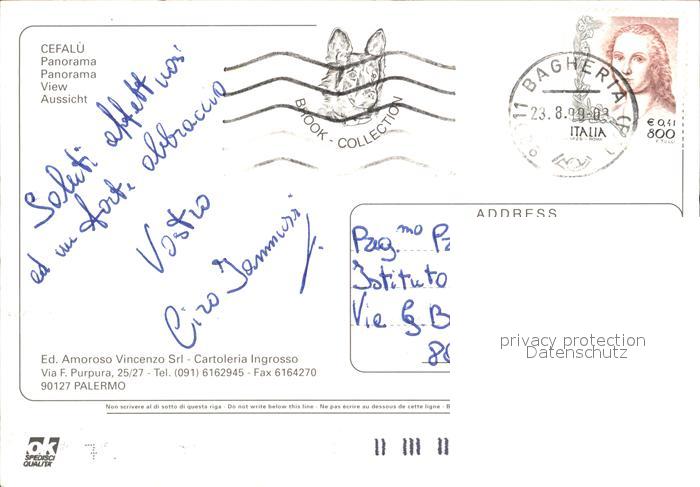 CEFALÙ
Panorama
Panorama
View
Aussicht
Saluti affettuosi
ed un forte abbraccio
Vostro
Ciro
BROOK - COLLECTION
BAGHERIA
23.8.99-03
ITALIA
€ 0,41
800
ADDRESS
Istituto
Via G. B
80
privacy protection
Datenschutz
Ed. Amoroso Vincenzo Srl - Cartoleria Ingrosso
Via F. Purpura, 25/27 - Tel. (091) 6162945 - Fax 6164270
90127 PALERMO
Non scrivere al di sotto di questa riga - Do not write below this line - Ne pas écrire au dessous de cette ligne - B
ok
SPEDISCI
QUALITÀ